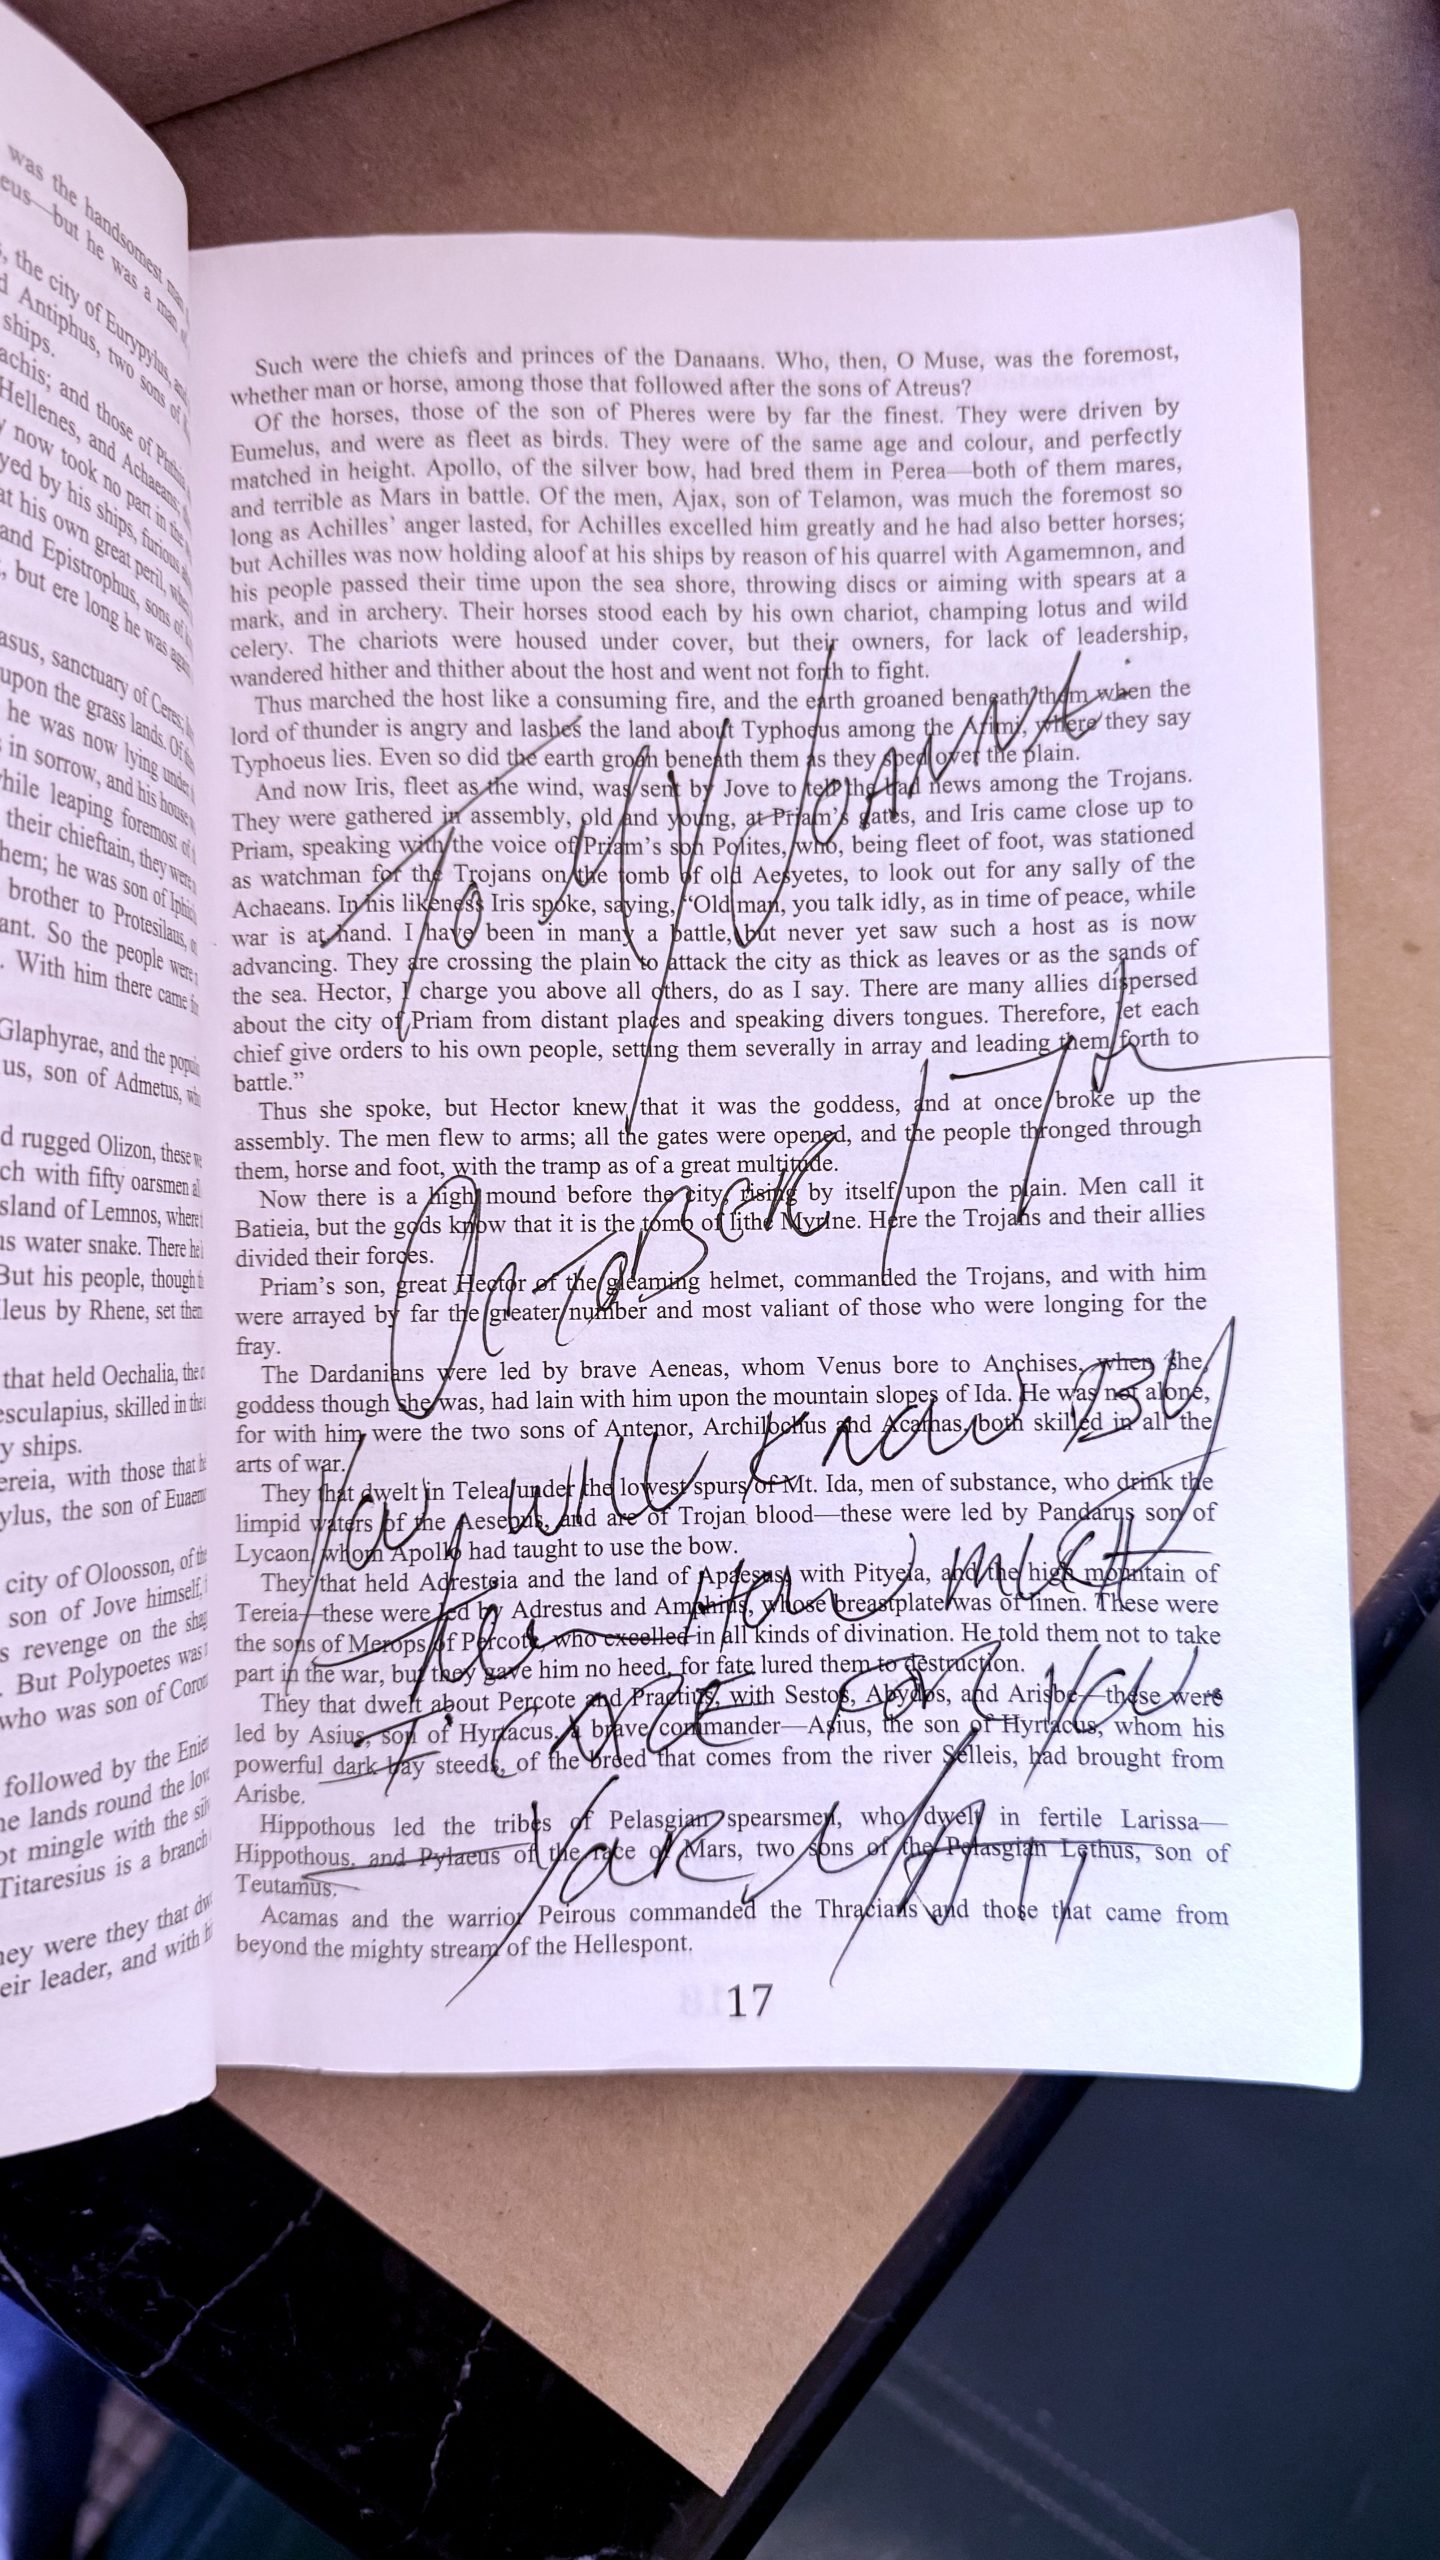 was the handsomest man
eus—but he was a man of
, the city of Eurypylus, and
d Antiphus, two sons of
ships.
achis; and those of Phthia
Hellenes, and Achaeans;
now took no part in the
yed by his ships, furious
at his own great peril, when
and Epistrophus, sons of
, but ere long he was again
asus, sanctuary of Ceres;
upon the grass lands. Of
he was now lying under
in sorrow, and his house
while leaping foremost of
their chieftain, they were
hem; he was son of
brother to Protesilaus,
ant. So the people were
. With him there came
Glaphyrae, and the
us, son of Admetus,
d rugged Olizon, these
ch with fifty oarsmen
sland of Lemnos, where
us water snake. There he
But his people, though
leus by Rhene, set them
that held Oechalia, the
esculapius, skilled in the
y ships.
ereia, with those that
ylus, the son of
city of Oloosson, of the
son of Jove himself,
s revenge on the
. But Polypoetes was
who was son of
followed by the
he lands round the
ot mingle with the
Titaresius is a branch
hey were they that
eir leader, and with
Such were the chiefs and princes of the Danaans. Who, then, O Muse, was the foremost,
whether man or horse, among those that followed after the sons of Atreus?
Of the horses, those of the son of Pheres were by far the finest. They were driven by
Eumelus, and were as fleet as birds. They were of the same age and colour, and perfectly
matched in height. Apollo, of the silver bow, had bred them in Perea—both of them mares,
and terrible as Mars in battle. Of the men, Ajax, son of Telamon, was much the foremost so
long as Achilles’ anger lasted, for Achilles excelled him greatly and he had also better horses;
but Achilles was now holding aloof at his ships by reason of his quarrel with Agamemnon, and
his people passed their time upon the sea shore, throwing discs or aiming with spears at a
mark, and in archery. Their horses stood each by his own chariot, champing lotus and wild
celery. The chariots were housed under cover, but their owners, for lack of leadership,
wandered hither and thither about the host and went not forth to fight.
Thus marched the host like a consuming fire, and the earth groaned beneath them when the
lord of thunder is angry and lashes the land about Typhoeus among the Arimi, where they say
Typhoeus lies. Even so did the earth groan beneath them as they sped over the plain.
And now Iris, fleet as the wind, was sent by Jove to tell the bad news among the Trojans.
They were gathered in assembly, old and young, at Priam’s gates, and Iris came close up to
Priam, speaking with the voice of Priam’s son Polites, who, being fleet of foot, was stationed
as watchman for the Trojans on the tomb of old Aesyetes, to look out for any sally of the
Achaeans. In his likeness Iris spoke, saying, “Old man, you talk idly, as in time of peace, while
war is at hand. I have been in many a battle, but never yet saw such a host as is now
advancing. They are crossing the plain to attack the city as thick as leaves or as the sands of
the sea. Hector, I charge you above all others, do as I say. There are many allies dispersed
about the city of Priam from distant places and speaking divers tongues. Therefore, let each
chief give orders to his own people, setting them severally in array and leading them forth to
battle.”
Thus she spoke, but Hector knew that it was the goddess, and at once broke up the
assembly. The men flew to arms; all the gates were opened, and the people thronged through
them, horse and foot, with the tramp as of a great multitude.
Now there is a high mound before the city, rising by itself upon the plain. Men call it
Batieia, but the gods know that it is the tomb of lithe Myrine. Here the Trojans and their allies
divided their forces.
Priam’s son, great Hector of the gleaming helmet, commanded the Trojans, and with him
were arrayed by far the greater number and most valiant of those who were longing for the
fray.
The Dardanians were led by brave Aeneas, whom Venus bore to Anchises, when she,
goddess though she was, had lain with him upon the mountain slopes of Ida. He was not alone,
for with him were the two sons of Antenor, Archilochus and Acamas, both skilled in all the
arts of war.
They that dwelt in Telea under the lowest spurs of Mt. Ida, men of substance, who drink the
limpid waters of the Aesepus, and are of Trojan blood—these were led by Pandarus son of
Lycaon, whom Apollo had taught to use the bow.
They that held Adresteia and the land of Apaesus, with Pityeia, and the high mountain of
Tereia—these were led by Adrestus and Amphius, whose breastplate was of linen. These were
the sons of Merops of Percote, who excelled in all kinds of divination. He told them not to take
part in the war, but they gave him no heed, for fate lured them to destruction.
They that dwelt about Percote and Practius, with Sestos, Abydos, and Arisbe—these were
led by Asius, son of Hyrtacus, a brave commander—Asius, the son of Hyrtacus, whom his
powerful dark bay steeds, of the breed that comes from the river Selleis, had brought from
Arisbe.
Hippothous led the tribes of Pelasgian spearsmen, who dwelt in fertile Larissa—
Hippothous, and Pylaeus of the race of Mars, two sons of the Pelasgian Lethus, son of
Teutamus.
Acamas and the warrior Peirous commanded the Thracians and those that came from
beyond the mighty stream of the Hellespont.
To My
October 17th
You will know By
Then How much
Fierce For You
17